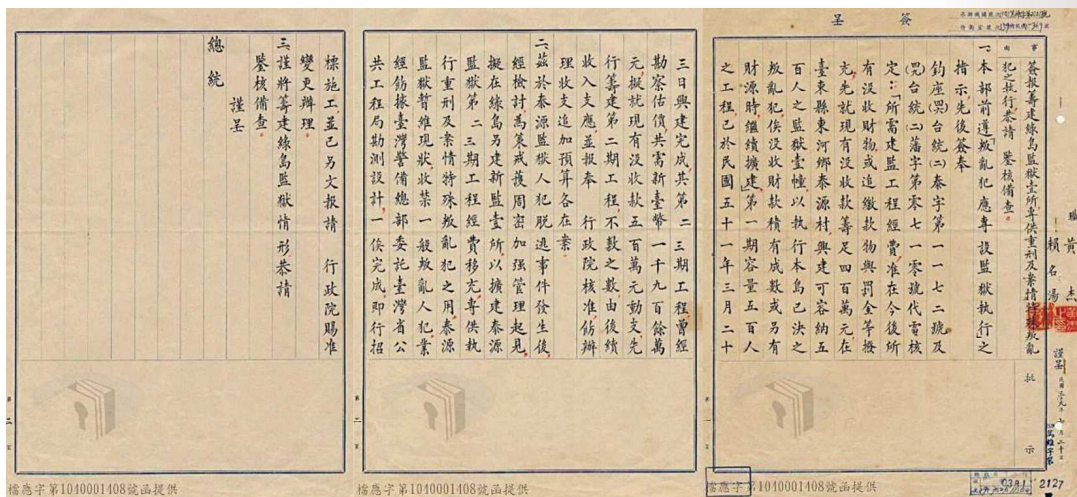 簽呈
事由
簽報籌建綠島監獄壹所專供重刑及案情特殊叛亂
犯之執行恭請 鑒核備查。
職 黃杰
賴名湯
謹呈
批示
一、本部前遵「叛亂犯應專設監獄執行」之
指示先後簽奉
鈞座(哭)台統(二)泰字第一一七二號及
台統(二)藩字第零七一零號代電核
定：「所需建監工程經費准在今後所
有沒收財物或追繳款物與罰金等撥
充先就現有沒收款籌足四百萬元在
臺東縣東河鄉泰源村興建可容納五
百人之監獄壹幢以執行本島已決之
叛亂犯俟沒收財款積有成數或另有
財源時繼續擴建」第一期容量五百人
之工程已於民國五十一年三月二十
三日興建完成其第二三期工程曾經
勘察估價共需新臺幣一千九百餘萬
元擬就現有沒收款五百萬元動支先
行籌建第二期工程不敷之數由後續
收入支應並報奉 行政院核准飭辦
理收支追加預算各在案
二、茲於泰源監獄人犯脫逃事件發生後
經檢討為策戒護周密加強管理起見
擬在綠島另建新監壹所以擴建泰源
監獄第二三期工程經費移充專供執
行重刑及案情特殊叛亂犯之用泰源
監獄暫維現狀收禁一般叛亂人犯業
經飭據臺灣警備總部委託臺灣省公
共工程局勘測設計一俟完成即行招
標施工並已另文報請 行政院賜准
變更辦理。
三、謹將籌建綠島監獄情形恭請
鑒核備查。
謹呈
總統
檔應字第1040001408號函提供
檔應字第1040001408號函提供
檔應字第1040001408號函提供
2127